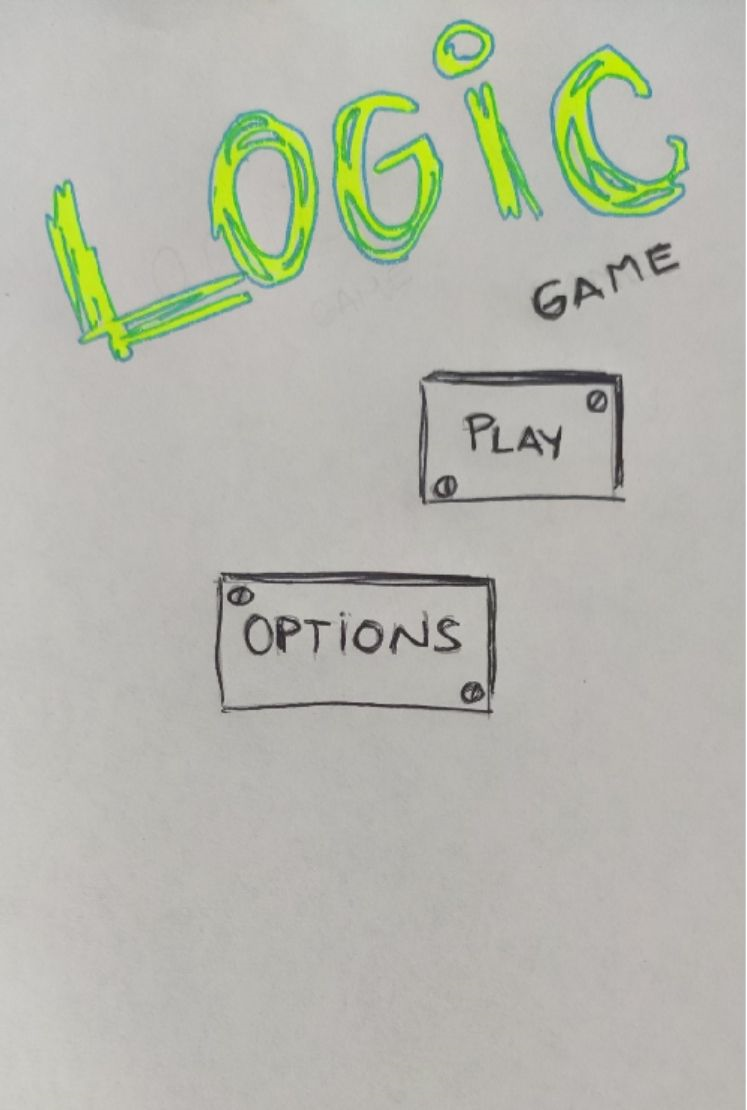 LOGiC
GAME
PLAY
OPTiONS